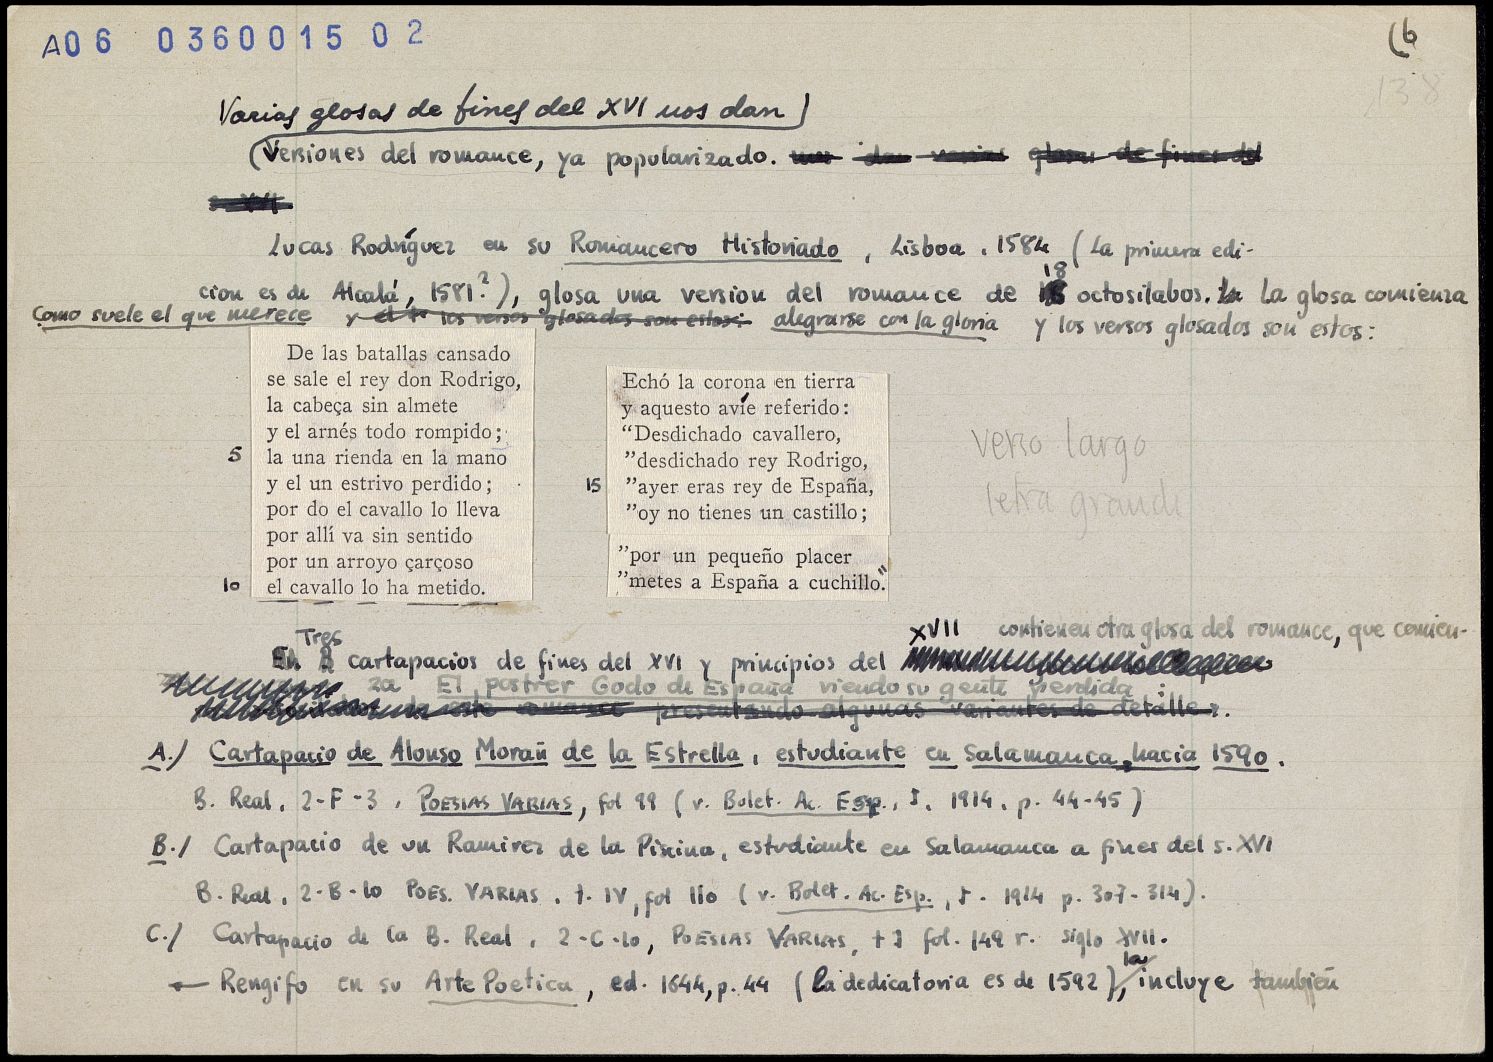 A06 0360015 02
(6
138
Varias glosas de fines del XVI nos dan
(Versiones del romance, ya popularizado. nos dan varias glosas de fines del
s. XVI.
Lucas Rodríguez en su Romancero Historiado, Lisboa, 1584 (La primera edi-
cion es de Alcalá, 1581?), glosa una version del romance de 18 octosilabos. La glosa comienza
Como suele el que merece y el 1º los versos glosados son estos: alegrarse con la gloria y los versos glosados son estos:
De las batallas cansado
se sale el rey don Rodrigo,
la cabeça sin almete
y el arnés todo rompido;
5 la una rienda en la mano
y el un estrivo perdido;
por do el cavallo lo lleva
por allí va sin sentido
por un arroyo çarçoso
10 el cavallo lo ha metido.
Echó la corona en tierra
y aquesto avíe referido:
“Desdichado cavallero,
”desdichado rey Rodrigo,
15 ”ayer eras rey de España,
”oy no tienes un castillo;
”por un pequeño placer
”metes a España a cuchillo."
verso largo
letra grande
Tres cartapacios de fines del XVI y principios del XVII contienen otra glosa del romance, que comien-
za El postrer Godo de España viendo su gente perdida:
este romance presentando algunas variantes de detalle:
A./ Cartapacio de Alonso Morañ de la Estrella, estudiante en Salamanca, hacia 1590.
B. Real, 2-F-3, POESIAS VARIAS, fol 99 (v. Bolet. Ac. Esp., I, 1914, p. 44-45)
B./ Cartapacio de un Ramirez de la Piscina, estudiante en Salamanca a fines del s. XVI
B. Real, 2-B-10 POES. VARIAS, t. IV, fol 110 (v. Bolet. Ac. Esp., I. 1914 p. 307-314).
C./ Cartapacio de la B. Real, 2-C-10, POESIAS VARIAS, t I fol. 149 r. siglo XVII.
← Rengifo en su Arte Poetica, ed. 1644, p. 44 (la dedicatoria es de 1592), la incluye también